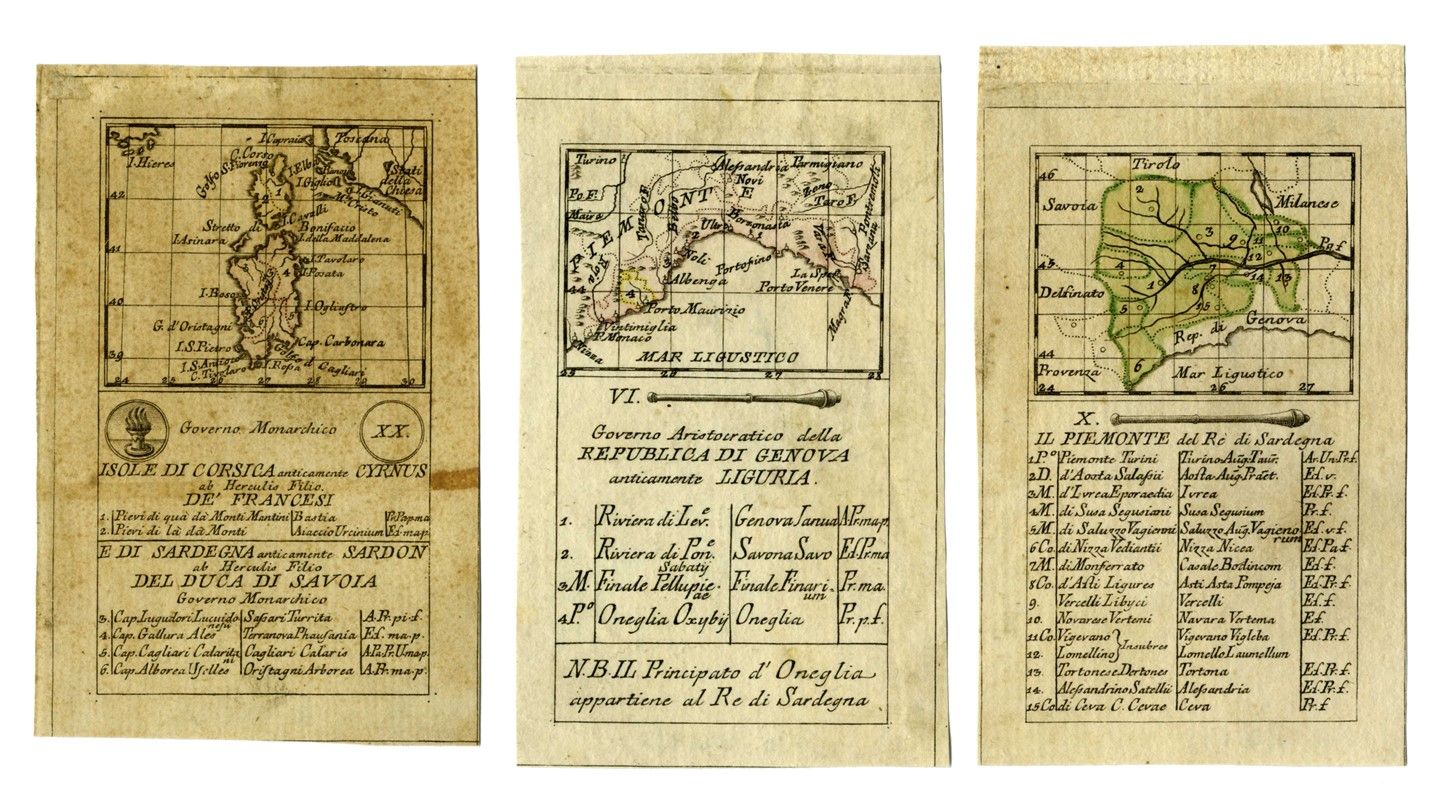 I. Hieres
I. Capraia
Toscana
C. Corso
Golfo S. Fiorenzo
I. Elba
I. Giglio
Stati della Chiesa
I. Gianuti
M. Cristo
42
1
2
I. Cavalli
Stretto di Bonifacio
I. Asinara
I. della Maddalena
41
I. Tavolaro
I. Posata
3
4
I. Bosa
I. Ogliastro
40
G. d'Oristagni
5
6
I. S. Pietro
Cap. Carbonara
I. S. Antioco
Golfo d Cagliari
39
24 25 26 27 28 29 30
Governo Monarchico
XX.
ISOLE DI CORSICA anticamente CYRNUS
ab Herculis Filio.
DE' FRANCESI
1. Pievi di quà dà Monti Mantini Bastia
2. Pievi di là dà Monti Aiaccio Urcinium Ef. map.
E DI SARDEGNA anticamente SARDON
ab Herculis Filio
DEL DUCA DI SAVOIA
Governo Monarchico
3. Cap. Lugudori Lucuido nesii Sassari Turrita A. Pr. pi. f.
4. Cap. Gallura Ales Terranova Phausania Ef. ma. p.
5. Cap. Cagliari Calarita ni Cagliari Calaris A Pa. Pr. U. ma. p.
6. Cap. Alborea Uselles Oristagni Arborea A. Pr. ma. p.
Turino
Alessandria
Parmigiano
Novi
Po F.
Zeno
Taro F.
Maira
Tanaro F.
Belbo
PIEMONTE
Borzonasia
Vara F.
Pontremoli
Sarzana
Noli
Roja
Albenga
Portofino
La Spe
Porto Venere
44
4
Porto Maurizio
Vintimiglia
P. Monaco
Nizza
Magra F.
MAR LIGUSTICO
25 26 27 28
VI.
Governo Aristocratico della
REPUBLICA DI GENOVA
anticamente LIGURIA.
1. Riviera di Lev.e Genova Janua A Pr. ma. p.
2. Riviera di Pon.e Sabatij Savona Savo Ef. Pr. ma
3 M. Finale Pellupie ae Finale Finari um Pr. ma.
4 P.o Oneglia Oxybij Oneglia Pr. p. f.
N.B. IL Principato d' Oneglia
appartiene al Re di Sardegna
46
Tirolo
Savoia
Milanese
2
3
9
10
11
Po f
45
12
4
1
7
14
13
Delfinato
8
15
5
Rep. di Genova
44
Provenza
6
Mar Ligustico
24 26 27
X.
IL PIEMONTE del Re di Sardegna
1 P.o Piemonte Turini Turino Aug. Taur. Ar. Un. Pr. f.
2 D. d'Aosta Salassii Aosta Aug. Praet. Ef. v.
3 M. d'Ivrea Eporaedia Ivrea Ef. Pr. f.
4 M. di Susa Segusiani Susa Segusium Pr. f.
5 M. di Saluzzo Vagienni Saluzzo Aug. Vagieno rum Ef. v. f.
6 Co. di Nizza Vediantii Nizza Nicea Ef. Pa f.
7 M. di Monferrato Casale Bodincom Ef. f.
8 Co. d'Asti Ligures Asti Asta Pompeja Ef. Pr. f.
9. Vercelli Libyci Vercelli Ef. f.
10. Novarese Vertemi Navara Vertema Ef.
11 Co. Vigevano Insubres Vigevano Vigleba Ef. Pr. f.
12. Lomellino Lomello Laumellum
13. Tortonese Dertones Tortona Ef. Pr. f.
14. Alessandrino Satellii Alessandria Ef. Pr. f.
15 Co. di Ceva C. Cevae Ceva Pr. f